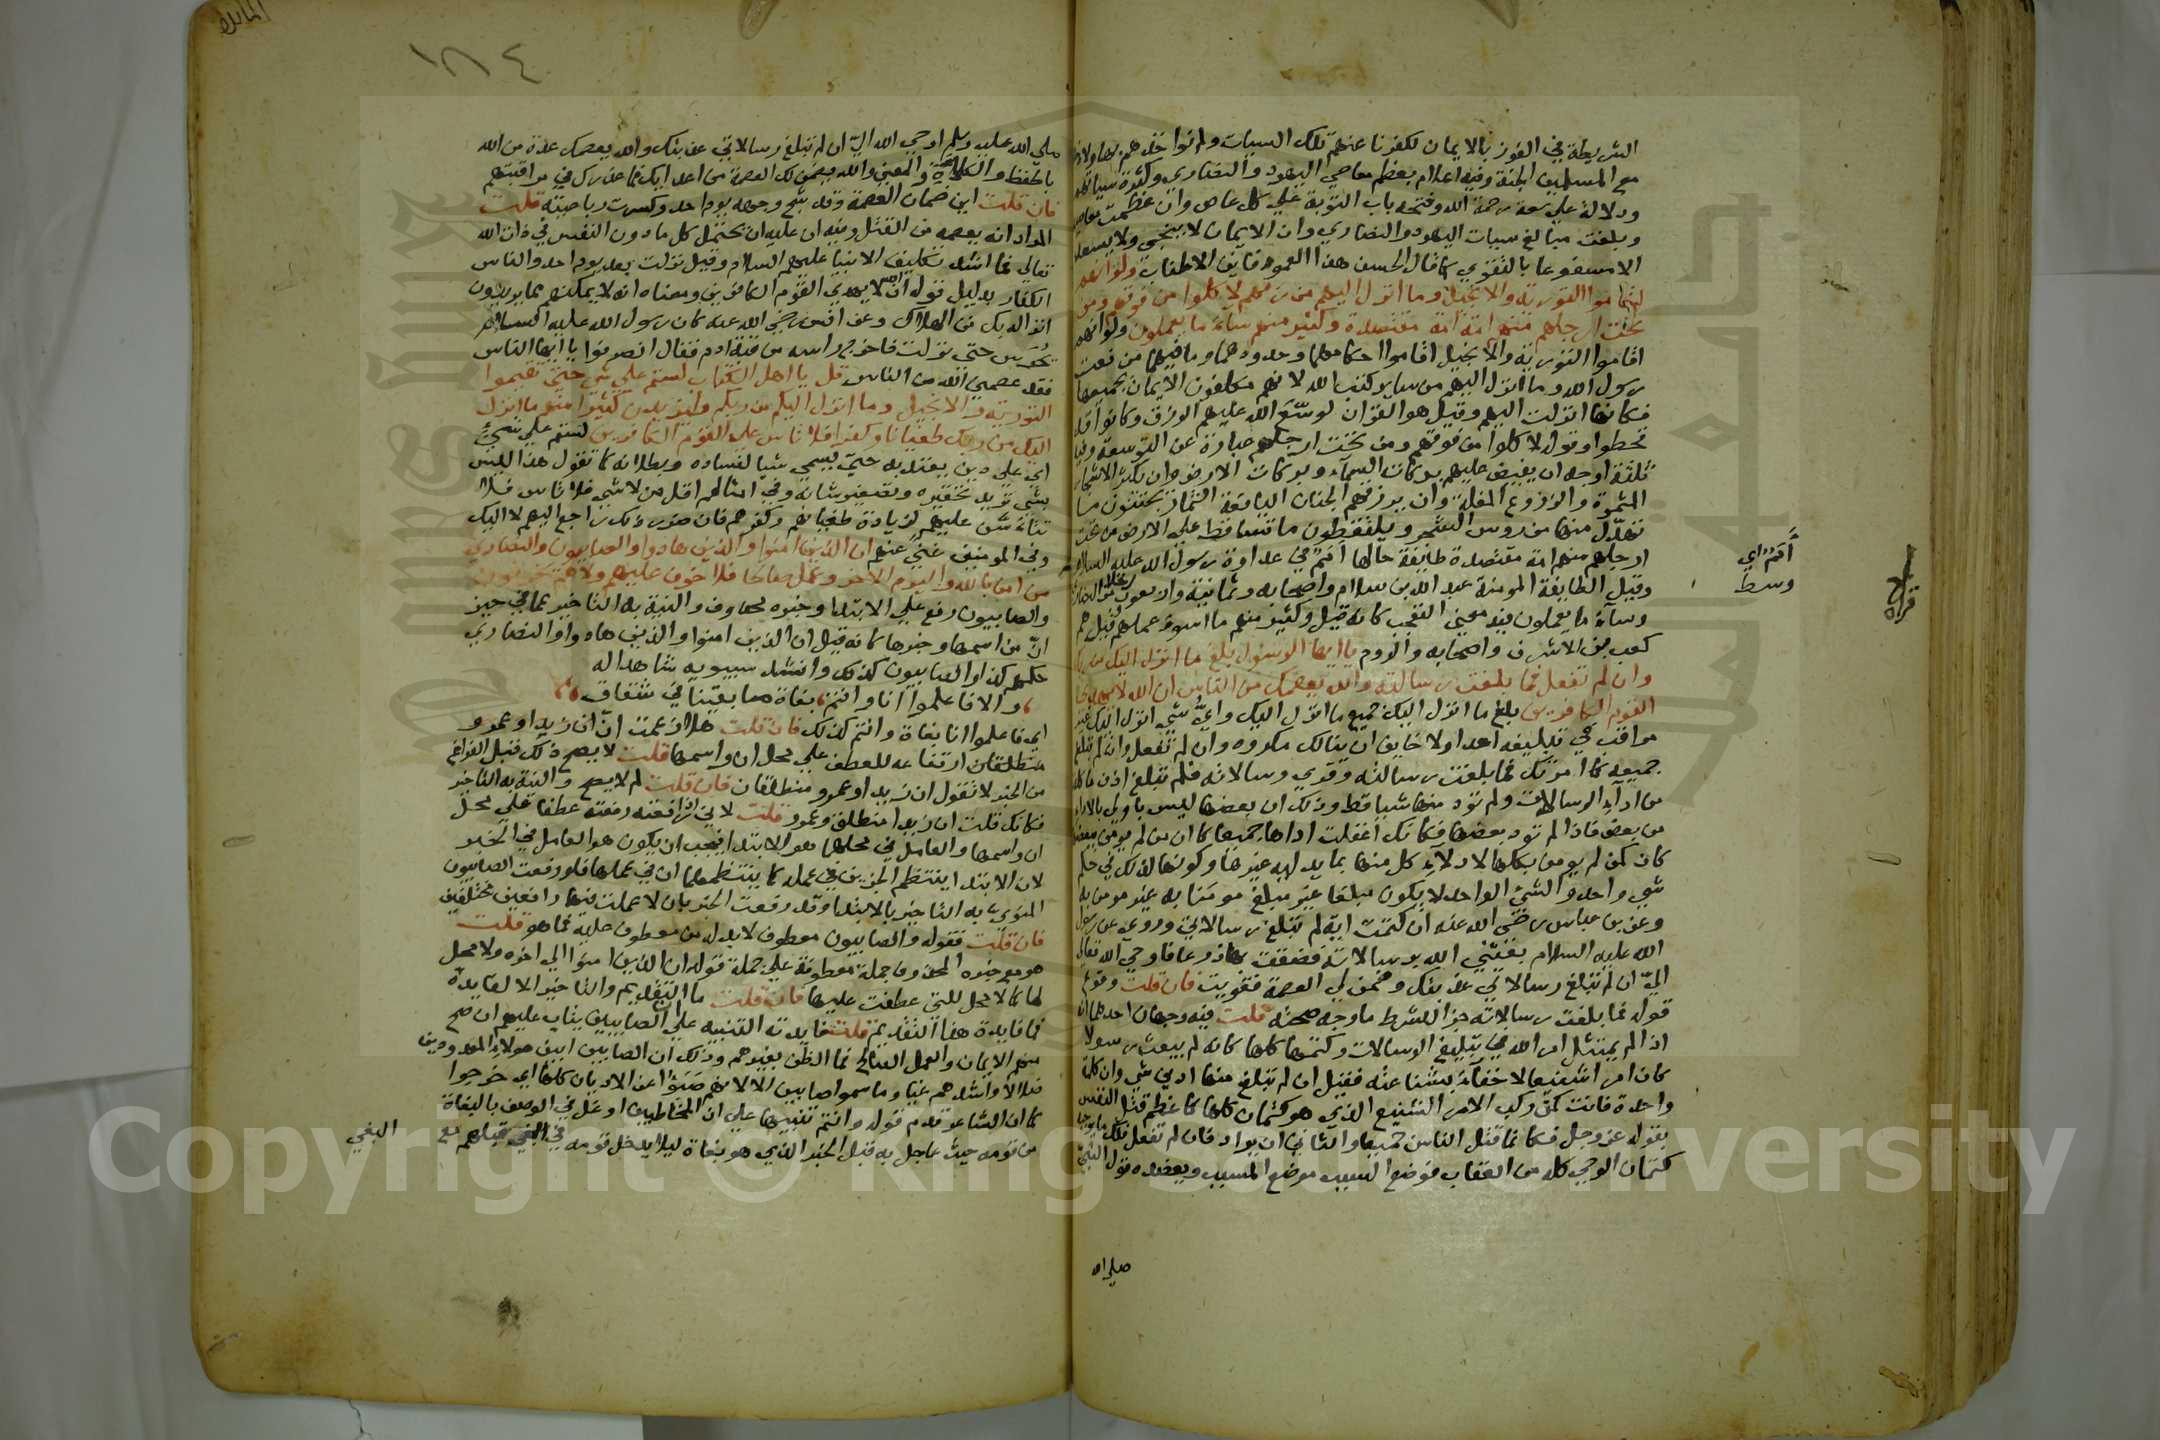 الشريطة في الفوز بالايمان لكفرنا عنهم تلك السيات ولم نواخذهم بها ولادخلناهم
مع المسلمين الجنة وفيه اعلام بعظم معاصي اليهود والنصاري وكثرة سياتهم
ودلالة علي سعة رحمة الله وفتحه باب التوبة علي كل عاص وان عظمت معاصيه
وبلغت مبالغ سيات اليهود والنصاري وان الايمان لا ينجي ولا يسعد
الا مشفوعا بالتقوي كما قال الحسن هذا العمود فاين الاطناب ولو انهم
اقاموا التورية والانجيل وما انزل اليهم من ربهم لاكلوا من فوقهم ومن
تحت ارجلهم منهم امة مقتصدة وكثير منهم ساء ما يعملون ولو انهم
اقاموا التورية والانجيل اقاموا احكامهما وحدودهما وما فيهما من نعت
رسول الله وما انزل اليهم من ساير كتب الله لانهم مكلفون الايمان بجميعها
فكانها انزلت اليهم وقيل هو القران لوسّع الله عليهم الرزق وكانوا قد
قحطوا وقوله لاكلوا من فوقهم ومن تحت ارجلهم عبارة عن التوسعة وفيه
ثلثة اوجه ان يفيض عليهم بركات السماء وبركات الارض وان يكثر الاشجار
المثمرة والزروع المغلة وان يرزقهم الجنان اليانعة الثمار يجتنون ما
تهدّل منها من روس الشجر ويلتقطون ما تساقط علي الارض من تحت
ارجلهم منهم امة مقتصدة طايفة حالها امم في عداوة رسول الله عليه السلام
وقيل الطايفة المومنة عبد الله بن سلام واصحابه وثمانية واربعون من النصاري
وساء ما يعملون فيه معني التعجب كانه قيل وكثير منهم ما اسوء عملهم قيل هم
كعب بن الاشرف واصحابه والروم يا ايها الرسول بلغ ما انزل اليك من ربك
وان لم تفعل فما بلغت رسالته والله يعصمك من الناس ان الله لا يهدي
القوم الكافرين بلغ ما انزل اليك جميع ما انزل اليك واي شي انزل اليك غير
مراقب في تبليغه احدا ولا خايف ان ينالك مكروه وان لم تفعل وان لم تبلغ
جميعه كما امرتك فما بلغت رسالته وقري رسالاته فلم تبلغ اذن ما كلفت
من اداء الرسالات ولم تود منها شيا قط وذلك ان بعضها ليس باولي بالاداء
من بعض فاذا لم تود بعضها فكانك اغفلت اداها جميعا كما ان من لم يومن ببعضها
كان كمن لم يومن بكلها لادلاء كل منها بما يدليه غيرها وكونها لذلك في حكم
شي واحد والشي الواحد لا يكون مبلغا غير مبلغ مومنا به غير مومن به
وعن بن عباس رضي الله عنه ان كتمت اية لم تبلغ رسالاتي وروي عن رسول
الله عليه السلام بعثني الله برسالاته فضقت بها ذرعا فاوحي الله تعالي
اليّ ان لم تبلغ رسالاتي عذبتك وضمن لي العصمة فقويت فان قلت وقوع
قوله فما بلغت رسالاته جزا للشرط ما وجه صحته قلت فيه وجهان احدهما انه
اذا لم يمتثل امر الله في تبليغ الرسالات وكتمها كلها كانه لم يبعث رسولا
كان امرا شنيعا لا خفاء بشناعته فقيل ان لم تبلغ منها ادني شي وان كلمة
واحدة فانت كمن ركب الامر الشنيع الذي هو كتمان كلها كما عظم قتل النفس
بقوله عز وجل فكانما قتل الناس جميعا والثاني ان يراد فان لم تفعل فلك ما يوجبه
كتمان الوحي كله من العقاب فوضع السبب موضع المسبب ويعضده قول النبي
صلي الله
اَمَمٌ اي
وسط
المايدة
١٨٤
صلي الله عليه وسلم اوحي الله اليّ ان لم تبلغ رسالاتي عذبتك والله يعصمك عدة من الله
بالحفظ والكلاءة والمعني والله يضمن لك العصمة من اعدايك فما عذرك في مراقبتهم
فان قلت اين ضمان العصمة وقد شج وجهه يوم احد وكسرت رباعيته قلت
المراد انه يعصمه من القتل وفيه ان عليه ان يحتمل كل ما دون النفس في ذات الله
تعالي فما اشد تكليف الانبيا عليهم السلام وقيل نزلت بعد يوم احد والناس
الكفار بدليل قوله ان الله لا يهدي القوم الكافرين ومعناه انه لا يمكنهم مما يريدون
انزاله بك من الهلاك وعن انس رضي الله عنه كان رسول الله عليه السلام
يُحرَس حتي نزلت فاخرج راسه من قبة ادم فقال انصرفوا يا ايها الناس
فقد عصمني الله من الناس قل يا اهل الكتاب لستم علي شي حتي تقيموا
التورية والانجيل وما انزل اليكم من ربكم وليزيدن كثيرا منهم ما انزل
اليك من ربك طغيانا وكفرا فلا تاس علي القوم الكافرين لستم علي شيء
اي علي دين يعتد به حتي يسمي شيا لفساده وبطلانه كما تقول هذا ليس
بشي تريد تحقيره وتصغير شانه وفي امثالهم اقل من لا شي فلا تاس فلا
تتاسّف عليهم لزيادة طغيانهم وكفرهم فان ضرر ذلك راجع اليهم لا اليك
وفي المومنين غني عنهم ان الذين امنوا والذين هادوا والصابيون والنصاري
من امن بالله واليوم الاخر وعمل صالحا فلا خوف عليهم ولا هم يحزنون
والصابيون رفع علي الابتدا وخبره محذوف والنية به التاخير عما في حيز
انّ من اسمها وخبرها كانه قيل ان الذين امنوا والذين هادوا والنصاري
حكمهم كذا والصابيون كذلك وانشد سيبويه شاهدا له
والا فاعلموا انا وانتم، بغاة ما بقينا في شقاق
اي فاعلموا انا بغاة وانتم كذلك فان قلت هلا زعمت ان ان زيدا وعمرو
منطلقان ارتفاعه للعطف علي محل ان واسمها قلت لا يصح ذلك قبل الفراغ
من الخبر لا تقول ان زيدا وعمرو منطلقان فان قلت لم لا يصح والنية به التاخير
فكانك قلت ان زيدا منطلق وعمرو قلت لاني اذا رفعته رفعته عطفا علي محل
ان واسمها والعامل في محلهما هو الابتدا فيجب ان يكون هو العامل في الخبر
لان الابتدا ينتظم الجزيين في عمله كما ينتظمهما ان في عملها فلو رفعت الصابيون
المنوي به التاخير بالابتدا وقد رفعت الخبر بان لاعملت فيها رافعين مختلفين
فان قلت فقوله والصابيون معطوف لابد له من معطوف عليه فما هو قلت
هو مع خبره المحذوف جملة معطوفة علي جملة قوله ان الذين امنوا الي اخره ولا محل
لها كما لا محل للتي عطفت عليها فان قلت ما التقديم والتاخير الا لفايدة
فما فايدة هذا التقديم قلت فايدته التنبيه علي ان الصابيين يتاب عليهم ان صح
منهم الايمان والعمل الصالح فما الظن بغيرهم وذلك ان الصابيين ابين هولاء المعدودين
ضلالا واشدهم غيا وما سموا صابيين الا لانهم صبؤا عن الاديان كلها اي خرجوا
كما ان الشاعر قدم قوله وانتم تنبيها علي ان المخاطبين اوغل في الوصف بالبغاة
من قومه حيث عاجل به قبل الخبر الذي هو بغاة ليلا يدخل قومه في البغي قبلهم مع
البغي